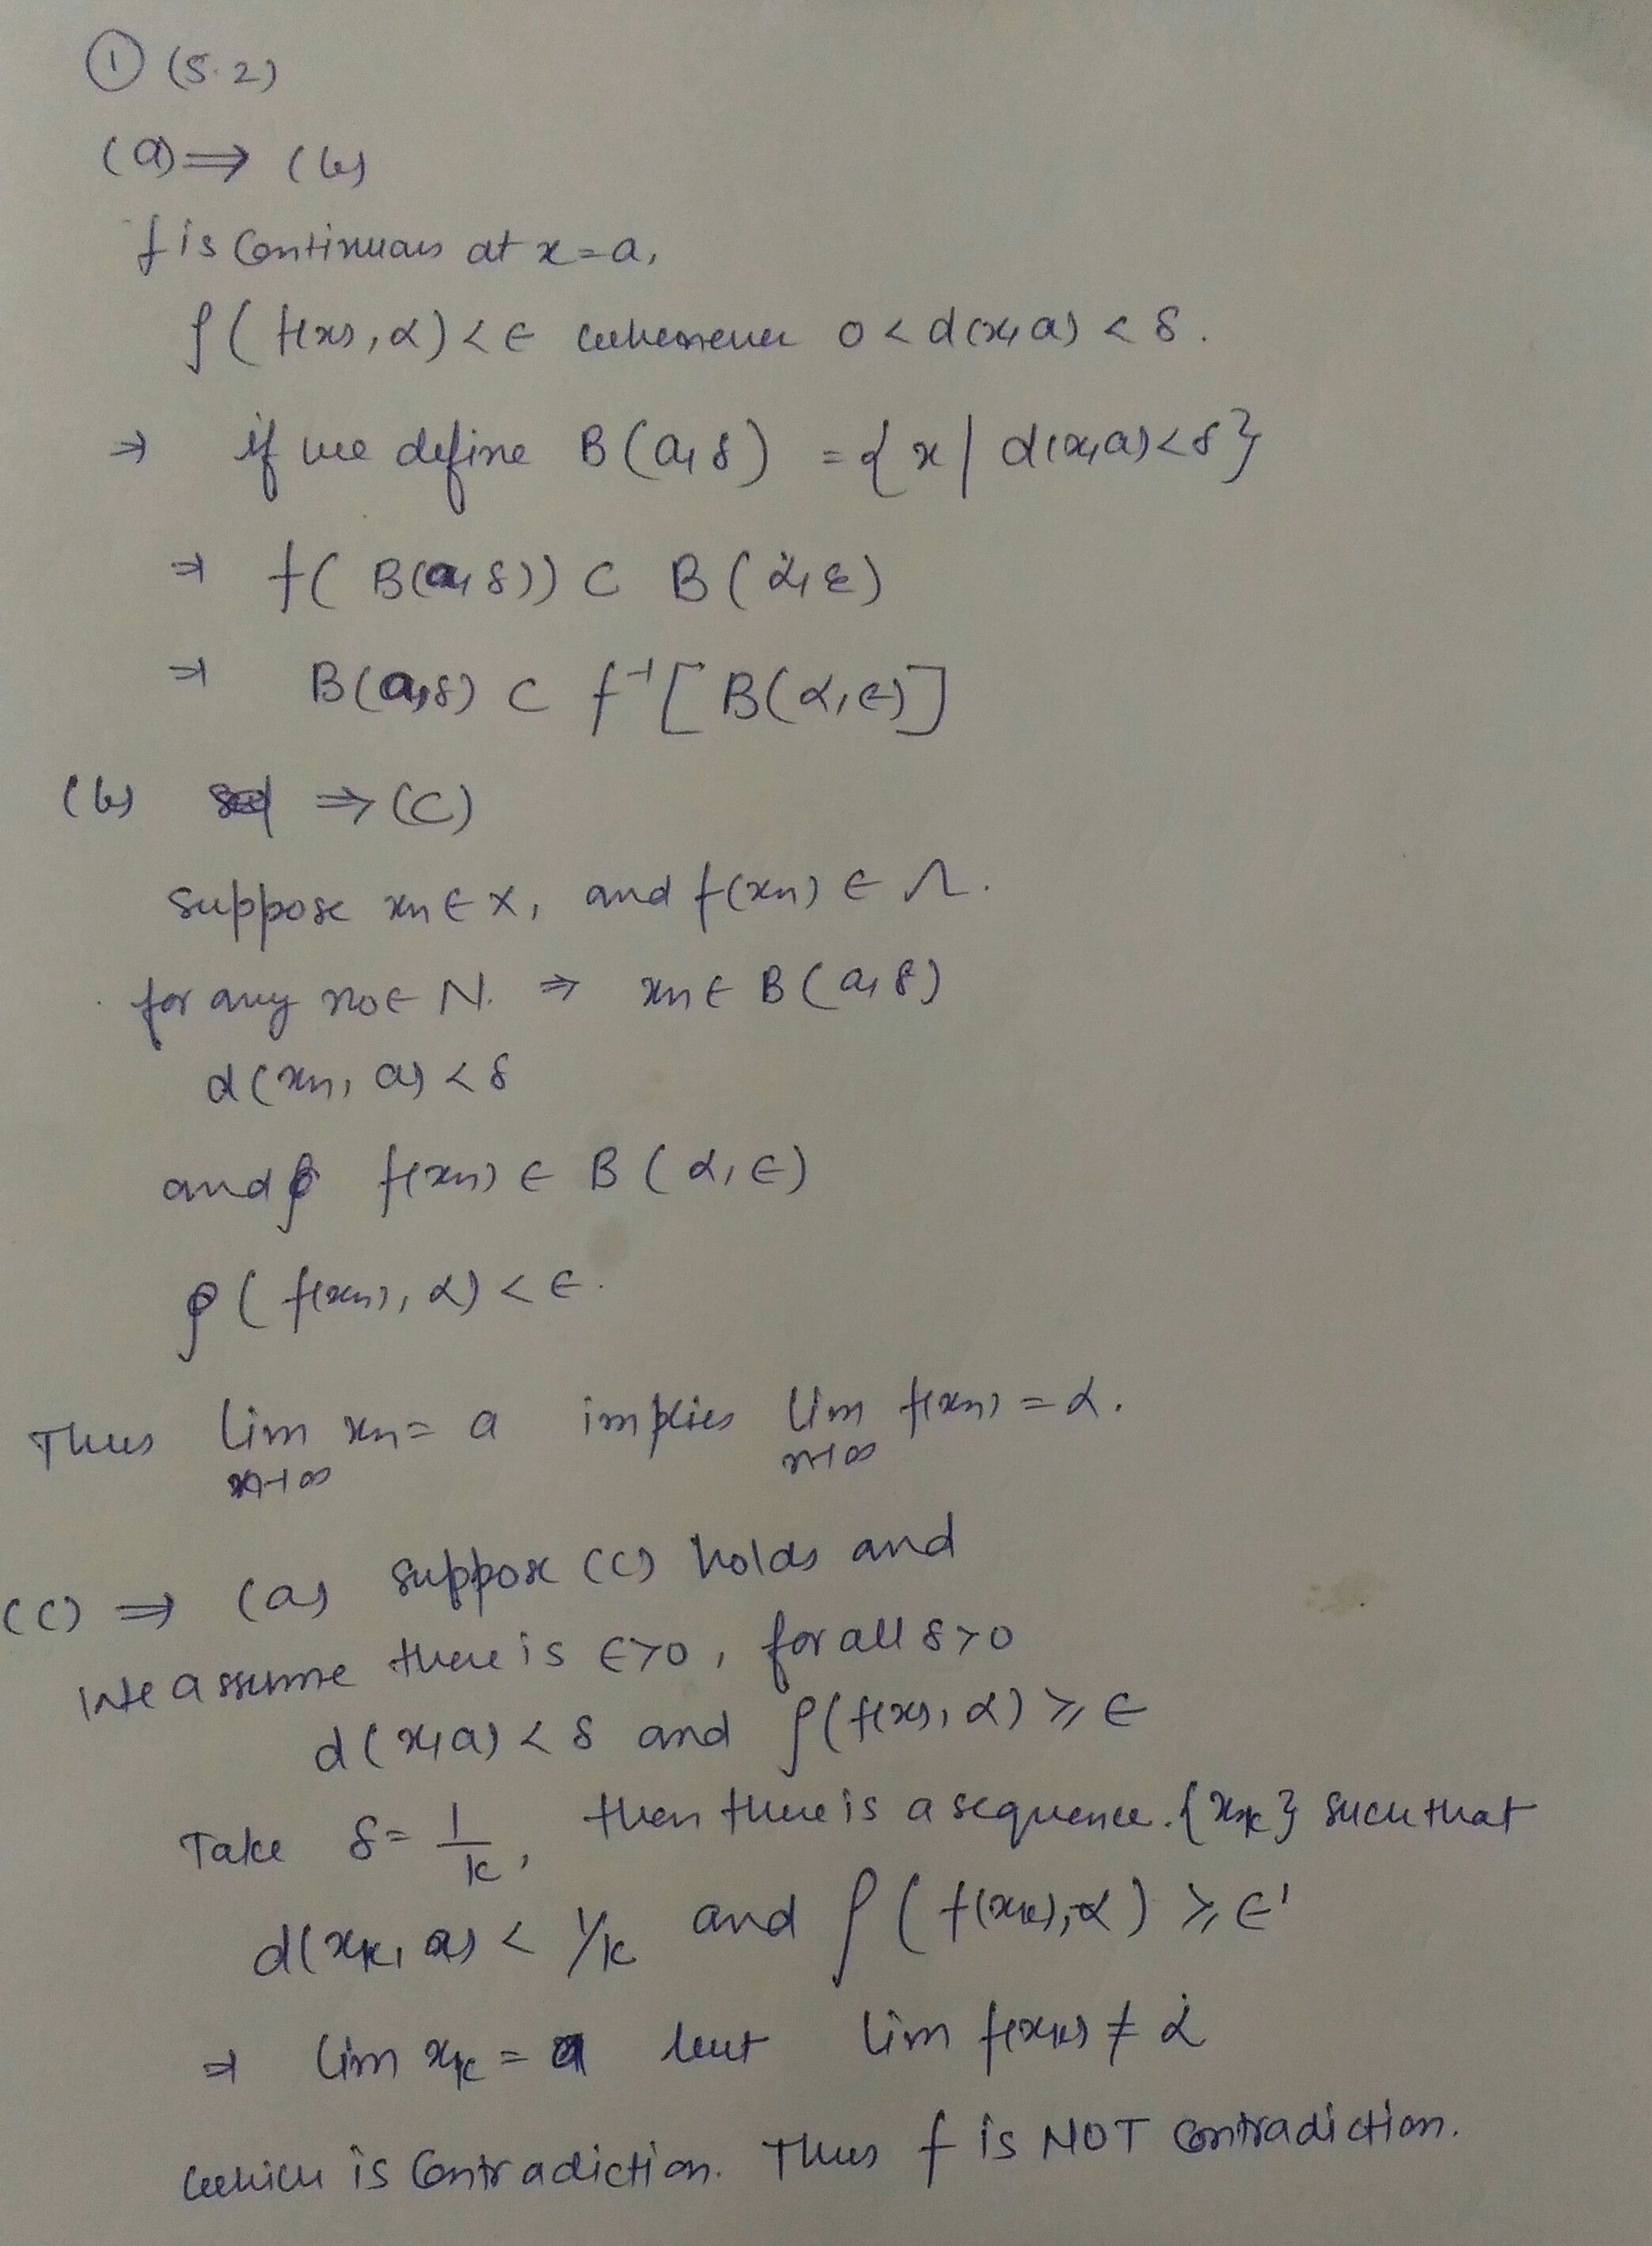 ① (5.2)
(a) ⇒ (b)
f is Continuous at x=a,
ρ( f(x), α) < ε whenever 0 < d(x, a) < δ.
⇒ if we define B(a, δ) = {x | d(x, a) < δ}
⇒ f( B(a, δ)) ⊂ B(α, ε)
⇒ B(a, δ) ⊂ f⁻¹[ B(α, ε)]
(b) ⇒ (C)
Suppose xn ∈ X, and f(xn) ∈ Ω.
for any n₀ ∈ N. ⇒ xn ∈ B(a, δ)
d(xn, a) < δ
and f(xn) ∈ B(α, ε)
ρ( f(xn), α) < ε.
Thus lim xn = a implies lim f(xn) = α.
n→∞ n→∞
(C) ⇒ (a) suppose (C) holds and
We assume there is ε>0, for all δ>0
d(x, a) < δ and ρ(f(x), α) ≥ ε
Take δ = 1/k, then there is a sequence. {xk} such that
d(xk, a) < 1/k and ρ( f(xk), α) ≥ ε'
⇒ lim xk = a but lim f(xk) ≠ α
which is Contradiction. Thus f is NOT Contradiction.